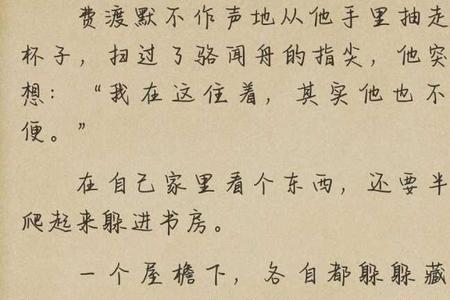 费渡默不作声地从他手里抽走
杯子，扫过了骆闻舟的指尖，他突
想：“我在这住着，其实他也不
便。”
在自己家里看个东西，还要半
爬起来躲进书房。
一个屋檐下，各自都躲躲藏